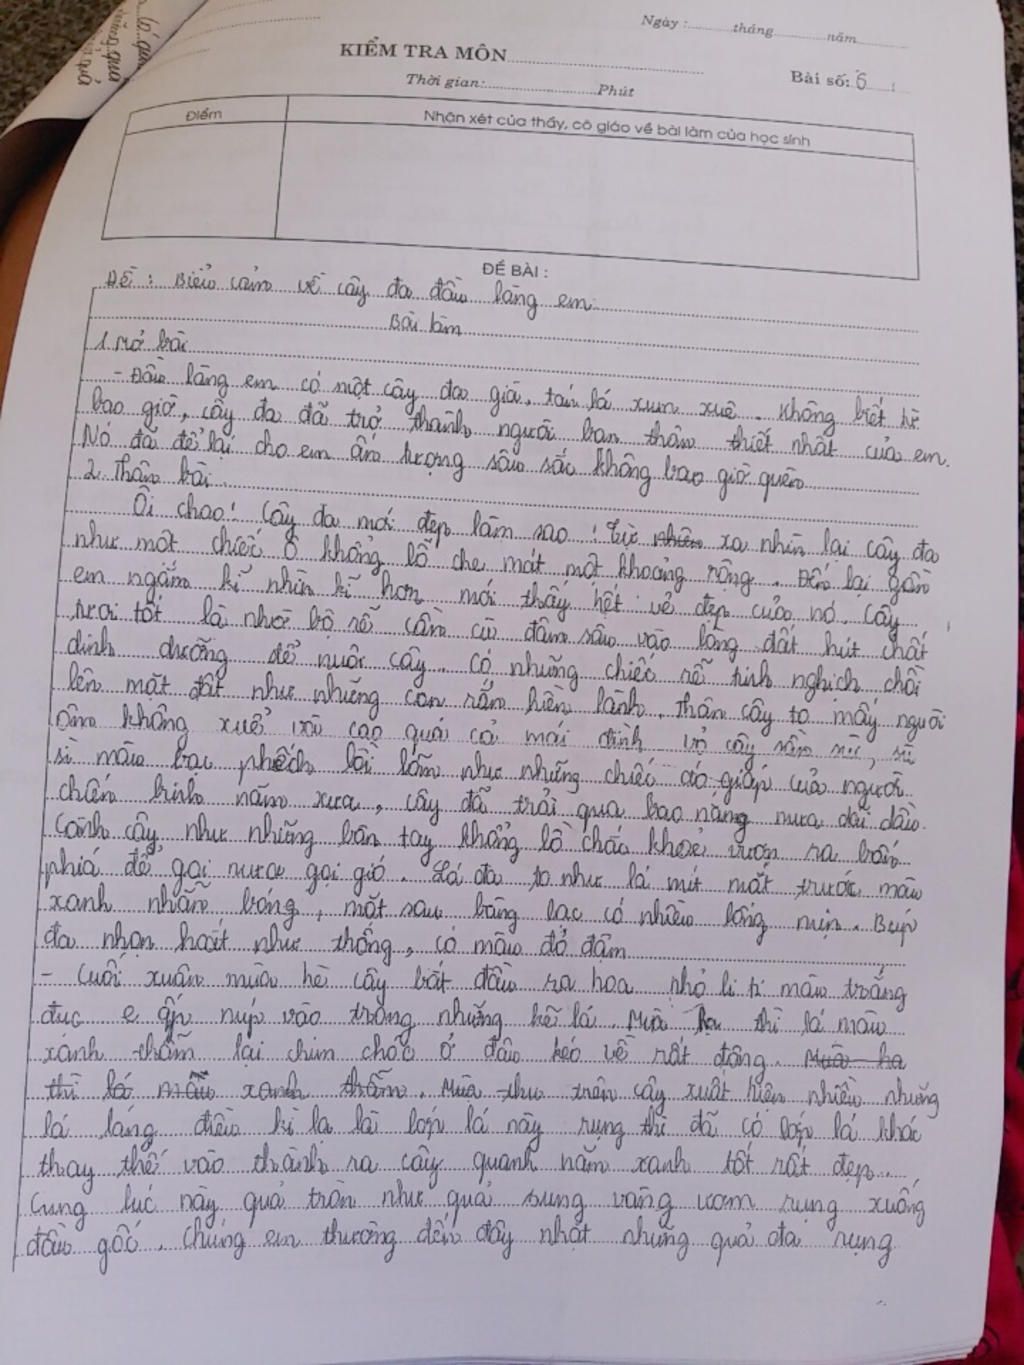 Ngày :..........tháng..........năm..........
KIỂM TRA MÔN
Bài số: 6
Thời gian:..........Phút
Điểm
Nhận xét của thầy, cô giáo về bài làm của học sinh
ĐỀ BÀI :
Đề : Biểu cảm về cây đa đầu làng em.
Bài làm
1. Mở bài
- Đầu làng em có một cây đa già, tán lá xum xuê. Không biết từ
bao giờ, cây đa đã trở thành người bạn thân thiết nhất của em.
Nó đã để lại cho em ấn tượng sâu sắc không bao giờ quên
2. Thân bài.
Ôi chao! Cây đa mới đẹp làm sao! Từ xa nhìn lại cây đa
như một chiếc ô khổng lồ che mát một khoảng rộng. Đến lại gần
em ngắm kĩ nhìn kĩ hơn mới thấy hết vẻ đẹp của nó. Cây
tươi tốt là nhờ bộ rễ cần cù đâm sâu vào lòng đất hút chất
dinh dưỡng để nuôi cây. Có những chiếc rễ tinh nghịch chồi
lên mặt đất như những con rắn hiền lành. Thân cây to mấy người
ôm không xuể cao quá cả mái đình vỏ cây sần sùi, sù
sì màu bạc phếch lồi lõm như những chiếc áo giáp của người
chiến binh năm xưa, cây đã trải qua bao nắng mưa dãi dầu.
Cành cây như những bàn tay khổng lồ chắc khoẻ vươn ra bốn
phía để gọi mưa gọi gió. Lá đa to như lá mít mặt trước màu
xanh nhẵn bóng, mặt sau bàng bạc có nhiều lông mịn. Búp
đa nhọn hoắt như thổng, có màu đỏ đậm
- Cuối xuân mùa hè cây bắt đầu ra hoa nhỏ li ti màu trắng
đục e ấp núp vào trong những kẽ lá. Mùa hạ thì lá màu
xanh thẫm lại chim chóc ở đâu kéo về rất đông. Mùa hạ
thì lá màu xanh thẫm. Mùa thu trên cây xuất hiện nhiều những
lá láng điều kì lạ là lớp lá này rụng thì đã có lớp lá khác
thay thế vào thành ra cây quanh năm xanh tốt rất đẹp.
Cung lúc này quả tròn như quả sung vàng ươm rụng xuống
đầu gốc. Chúng em thường đến đây nhặt những quả đa rụng